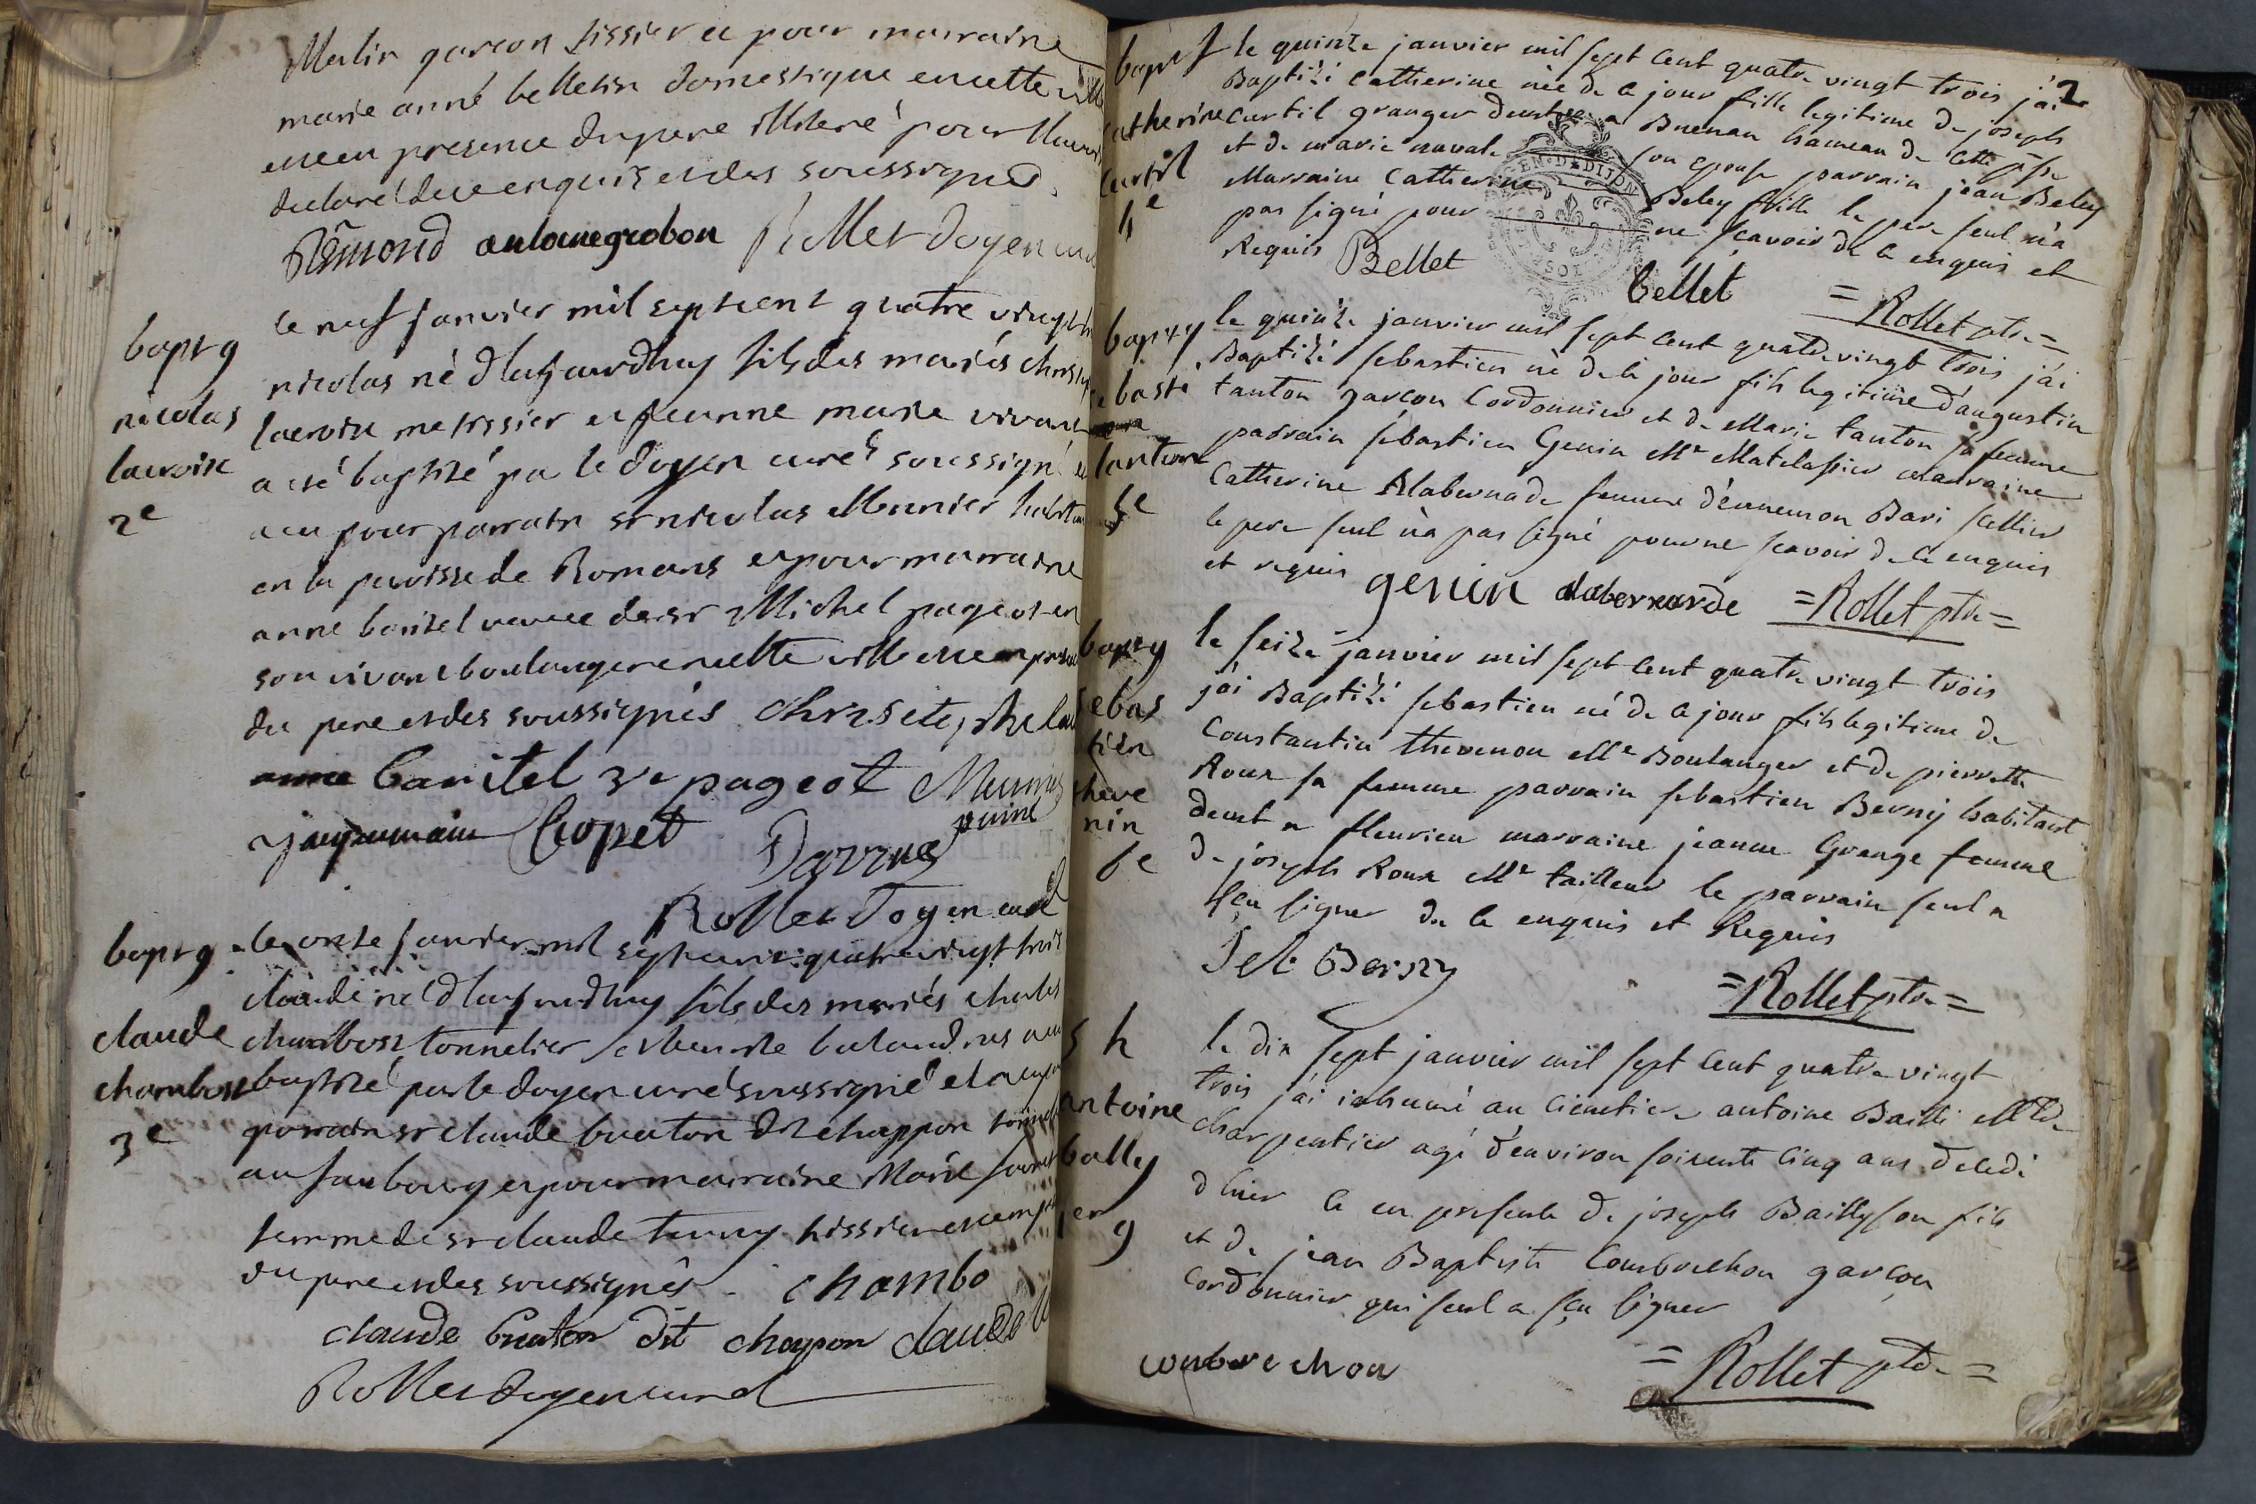 Merlin garçon tissier et pour marraine
marie anné belletin domestique en cette ville
le tout en presence du pere illiteré pour l'avoir
declaré de ce enquis et des soussignes.
Rémond antoine grobon Rollet doyen curé
bapt g
nicolas
lacroix
2e
le neuf janvier mil sept cent quatre vingt
nicolas né d'aujourdhuy fils des mariés
lacroix me tissier et jeanne marie vivant
a eté baptisé par le doyen curé soussigné et
a eu pour parrain sr nicolas Munier habitant
en la paroisse de Romans et pour marraine
anne baritel veuve de sr Michel pageot en
son vivant boulanger en cette ville
du pere et des soussignés
anne baritel ve pageot Meunier
Cropet puiné
Rollet doyen curé
bapt g
claude
chambost
3e
le onze janvier mil sept cent quatre vingt trois
claude né d'aujourdhuy fils des mariés charles
chambost tonnelier
baptisé par le doyen curé soussigné et a eu pour
parrain sr claude buaton dit chappon
au faubourg et pour marraine Marie
femme de sr claude tissier
du pere et des soussignés - chambo
claude buaton dit chapon claude
Rollet doyen curé
2
bapt f
catherine
curtil
4e
le quinze janvier mil sept cent quatre vingt trois j'ai
Baptizé Catherine née de ce jour fille legitime de joseph
curtil granger demt a Buenan hameau de cette psse
et de marie navale son epouse parrain jean Beley
Marraine Catherine Beley fille le pere seul n'a
pas signé pour ne sçavoir de ce enquis et
Requis Bellet bellet = Rollet ptre =
bapt g
sebasti
tanton
5e
le quinze janvier mil sept cent quatre vingt trois j'ai
Baptizé sebastien né de ce jour fils legitime d'augustin
tanton garçon Cordonnier et de Marie tanton sa femme
parrain sebastien Genin Me Matelassier marraine
Catherine Alabernade femme d'ennemon Bari sellier
le pere seul n'a pas signé pour ne scavoir de ce enquis
et requis genin alabernarde = Rollet ptre =
bapt g
sebas
tien
theve
nin
6e
le seize janvier mil sept cent quatre vingt trois
j'ai Baptizé sebastien né de ce jour fils legitime de
Constantin thevenon Me Boulanger et de pierrette
Roux sa femme parrain sebastien Berniy habitant
demt a fleurieu marraine jeanne Grange femme
de joseph Roux Me tailleur le parrain seul a
sçu signer de ce enquis et Requis
= Rollet ptre =
s h
antoine
bally
1er
g
le dix sept janvier mil sept cent quatre vingt
trois j'ai inhumé au cimetiere antoine Bailli Me
charpentier agé d'environ soixante cinq ans decedé
d'hier ce en presence de joseph Bailly son fils
et de jean Baptiste Combrechon garçon
Cordonnier qui seul a sçu signer
combrechon = Rollet ptre =